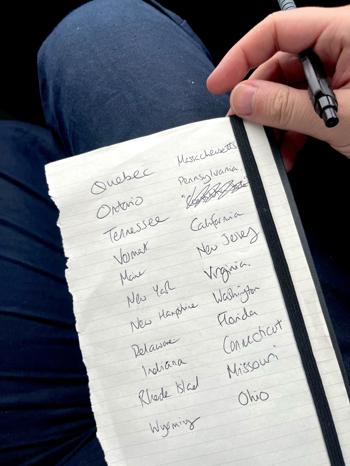 Quebec
Ontario
Tennessee
Vermont
Maine
New York
New Hampshire
Delaware
Indiana
Rhode Islad
Wyoming
Massachewsetts
Pennsylvania
California
New Jersey
Virginia.
Washington
Florida
Conecticut
Missouri
Ohio